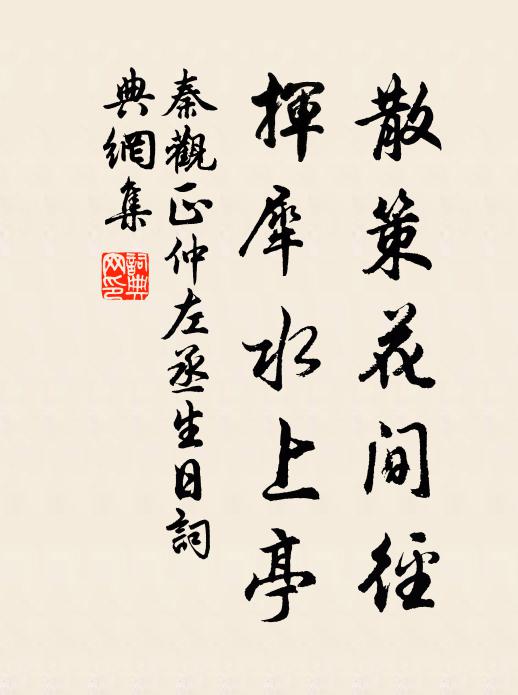 散策花間徑
揮犀水上亭
秦觀正仲左丞生日詞
典網集
詞典網印